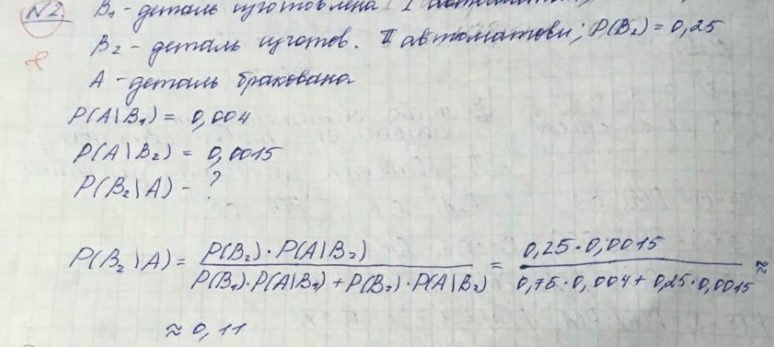 №2. B₁ - деталь изготовлена I
B₂ - деталь изготов. II автоматом; P(B₂) = 0,25
A - деталь бракована
P(A\B₁) = 0,004
P(A\B₂) = 0,0015
P(B₂\A) - ?
P(B₂\A) = P(B₂)·P(A\B₂) / P(B₁)·P(A\B₁) + P(B₂)·P(A\B₂) = 0,25·0,0015 / 0,75·0,004 + 0,25·0,0015 ≈
≈ 0,11